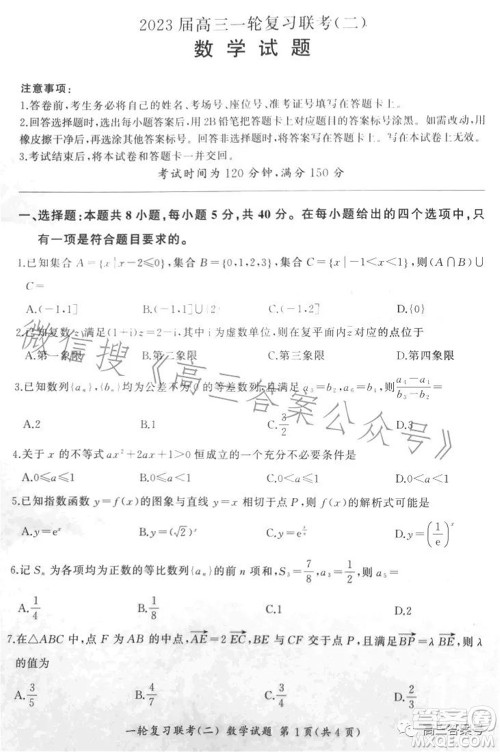 2023届高三一轮复习联考(二)
数学试题
注意事项:
1.答卷前,考生务必将自己的姓名、考场号、座位号、准考证号填写在答题卡上。
2.回答选择题时,选出每小题答案后,用2B铅笔把答题卡对应题目的答案标号涂黑。如需改动,用
橡皮擦干净后,再选涂其他答案标号。回答非选择题时,将答案写在答题卡上。写在本试卷上无效。
3.考试结束后,将本试卷和答题卡一并交回。
考试时间为120分钟,满分150分
一、选择题:本题共8小题,每小题5分,共40分。在每小题给出的四个选项中,只
有一项是符合题目要求的。
1.已知集合A={x|x-2≤0},集合B={0,1,2,3},集合C={x|-1<x<1},则(A∩B)∪
C=
A.(-1,1] B.(-1,1]∪{2} C.(-1,2] D.{0}
2.已知复数z满足(1+i)z=2-i,其中i为虚数单位,则在复平面内z对应的点位于
A.第一象限 B.第二象限 C.第三象限 D.第四象限
3.已知数列{aₙ},{bₙ}均为公差不为0的等差数列,且满足
A.2 B.1 C.3/2 D.3
4.关于x的不等式ax²+2ax+1>0恒成立的一个充分不必要条件是
A.0≤a≤1 B.0≤a<1 C.0<a<1 D.0<a≤1
5.已知指数函数y=f(x)的图象与直线y=x相切于点P,则f(x)的解析式可能是
6.记Sₙ为各项均为正数的等比数列{aₙ}的前n项和,S₃=7/8,a₃=1/2,则
A.1/4 B.1/8 C.1 D.2
7.在△ABC中,点F为AB的中点,AE=2EC,BE与CF交于点P,且满足BP=λBE,则λ
的值为
A.3/5 B.4/7 C.3/4 D.2/3
一轮复习联考(二) 数学试题 第1页(共4页)
微信搜《高三答案公众号》
高三答案号